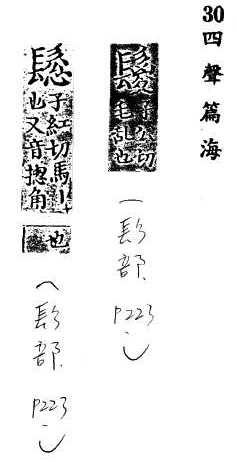 30 四聲篇海
鬉 子公切
毛乱也
(髟部. P223)
子紅切馬丨
也又音揔角
也
(髟部. P223)